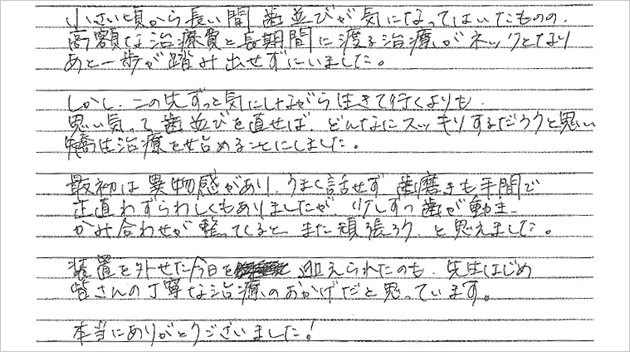 小さい頃から長い間歯並びが気になってはいたものの、
高額な治療費と長期間に渡る治療がネックとなり
あと一歩が踏み出せずにいました。
しかし、この先ずっと気にしながら生きて行くよりも、
思い気って歯並びを直せば、どんなにスッキリするだろうと思い
矯正治療を始めることにしました。
最初は異物感があり、うまく話せず、歯磨きも手間で
正直わずらわしくもありましたが、少しずつ歯が動き、
かみ合わせが整ってくると、また頑張ろう、と思えました。
装置を外せた今日を迎えられたのも、先生はじめ
皆さんの丁寧な治療のおかげだと思っています。
本当にありがとうございました!